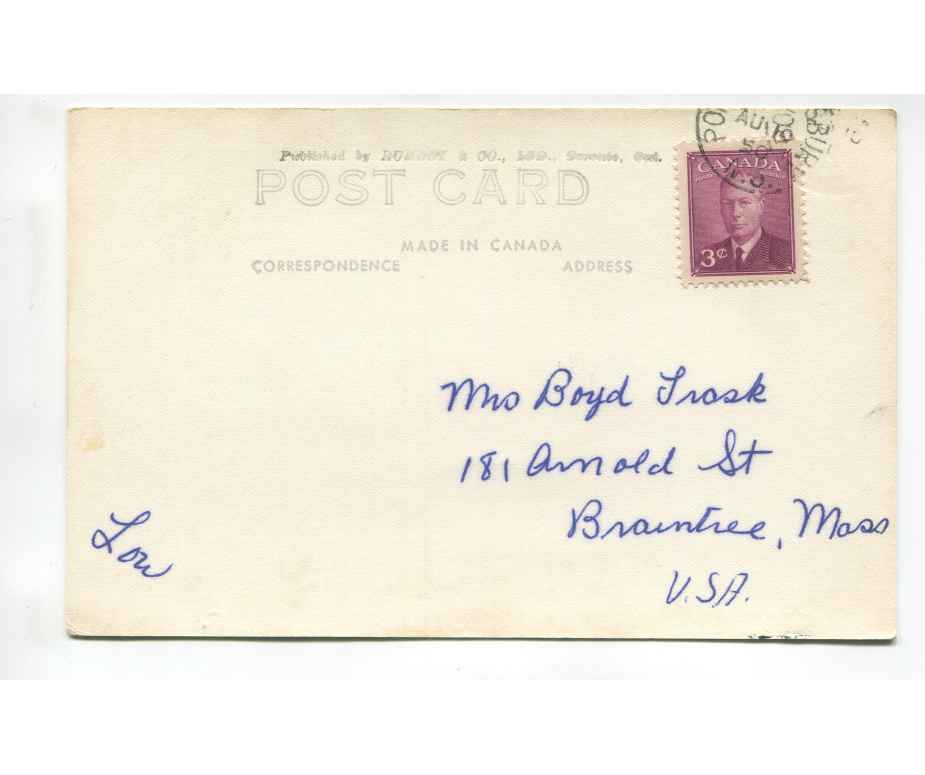 Published by & CO., LTD., Toronto, Ont.
POST CARD
MADE IN CANADA
CORRESPONDENCE ADDRESS
CANADA
3¢
AU
50
N.S.
Mrs Boyd Trask
181 Arnold St
Braintree, Mass
U.S.A.
Lou